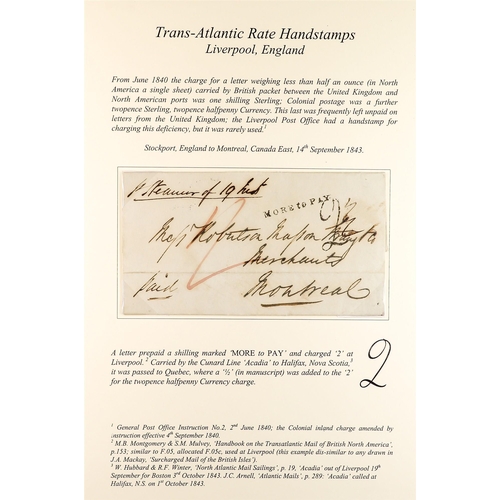 Trans-Atlantic Rate Handstamps
Liverpool, England
From June 1840 the charge for a letter weighing less than half an ounce (in North
America a single sheet) carried by British packet between the United Kingdom and
North American ports was one shilling Sterling; Colonial postage was a further
twopence Sterling, twopence halfpenny Currency. This last was frequently left unpaid on
letters from the United Kingdom; the Liverpool Post Office had a handstamp for
charging this deficiency, but it was rarely used.¹
Stockport, England to Montreal, Canada East, 14th September 1843.
p Steamer of 19 Inst
MORE to PAY
Messrs Robertson Masson
Merchants
Paid
Montreal
A letter prepaid a shilling marked 'MORE to PAY' and charged '2' at
Liverpool.² Carried by the Cunard Line 'Acadia' to Halifax, Nova Scotia,³
it was passed to Quebec, where a '½' (in manuscript) was added to the '2'
for the twopence halfpenny Currency charge.
2
¹ General Post Office Instruction No.2, 2nd June 1840; the Colonial inland charge amended by
instruction effective 4th September 1840.
² M.B. Montgomery & S.M. Mulvey, 'Handbook on the Transatlantic Mail of British North America',
p.153; similar to F.05, allocated F.05c, used at Liverpool (this example dis-similar to any drawn in
J.A. Mackay, 'Surcharged Mail of the British Isles').
³ W. Hubbard & R.F. Winter, 'North Atlantic Mail Sailings', p. 19, 'Acadia' out of Liverpool 19th
September for Boston 3rd October 1843. J.C. Arnell, 'Atlantic Mails', p. 289: 'Acadia' called at
Halifax, N.S. on 1st October 1843.